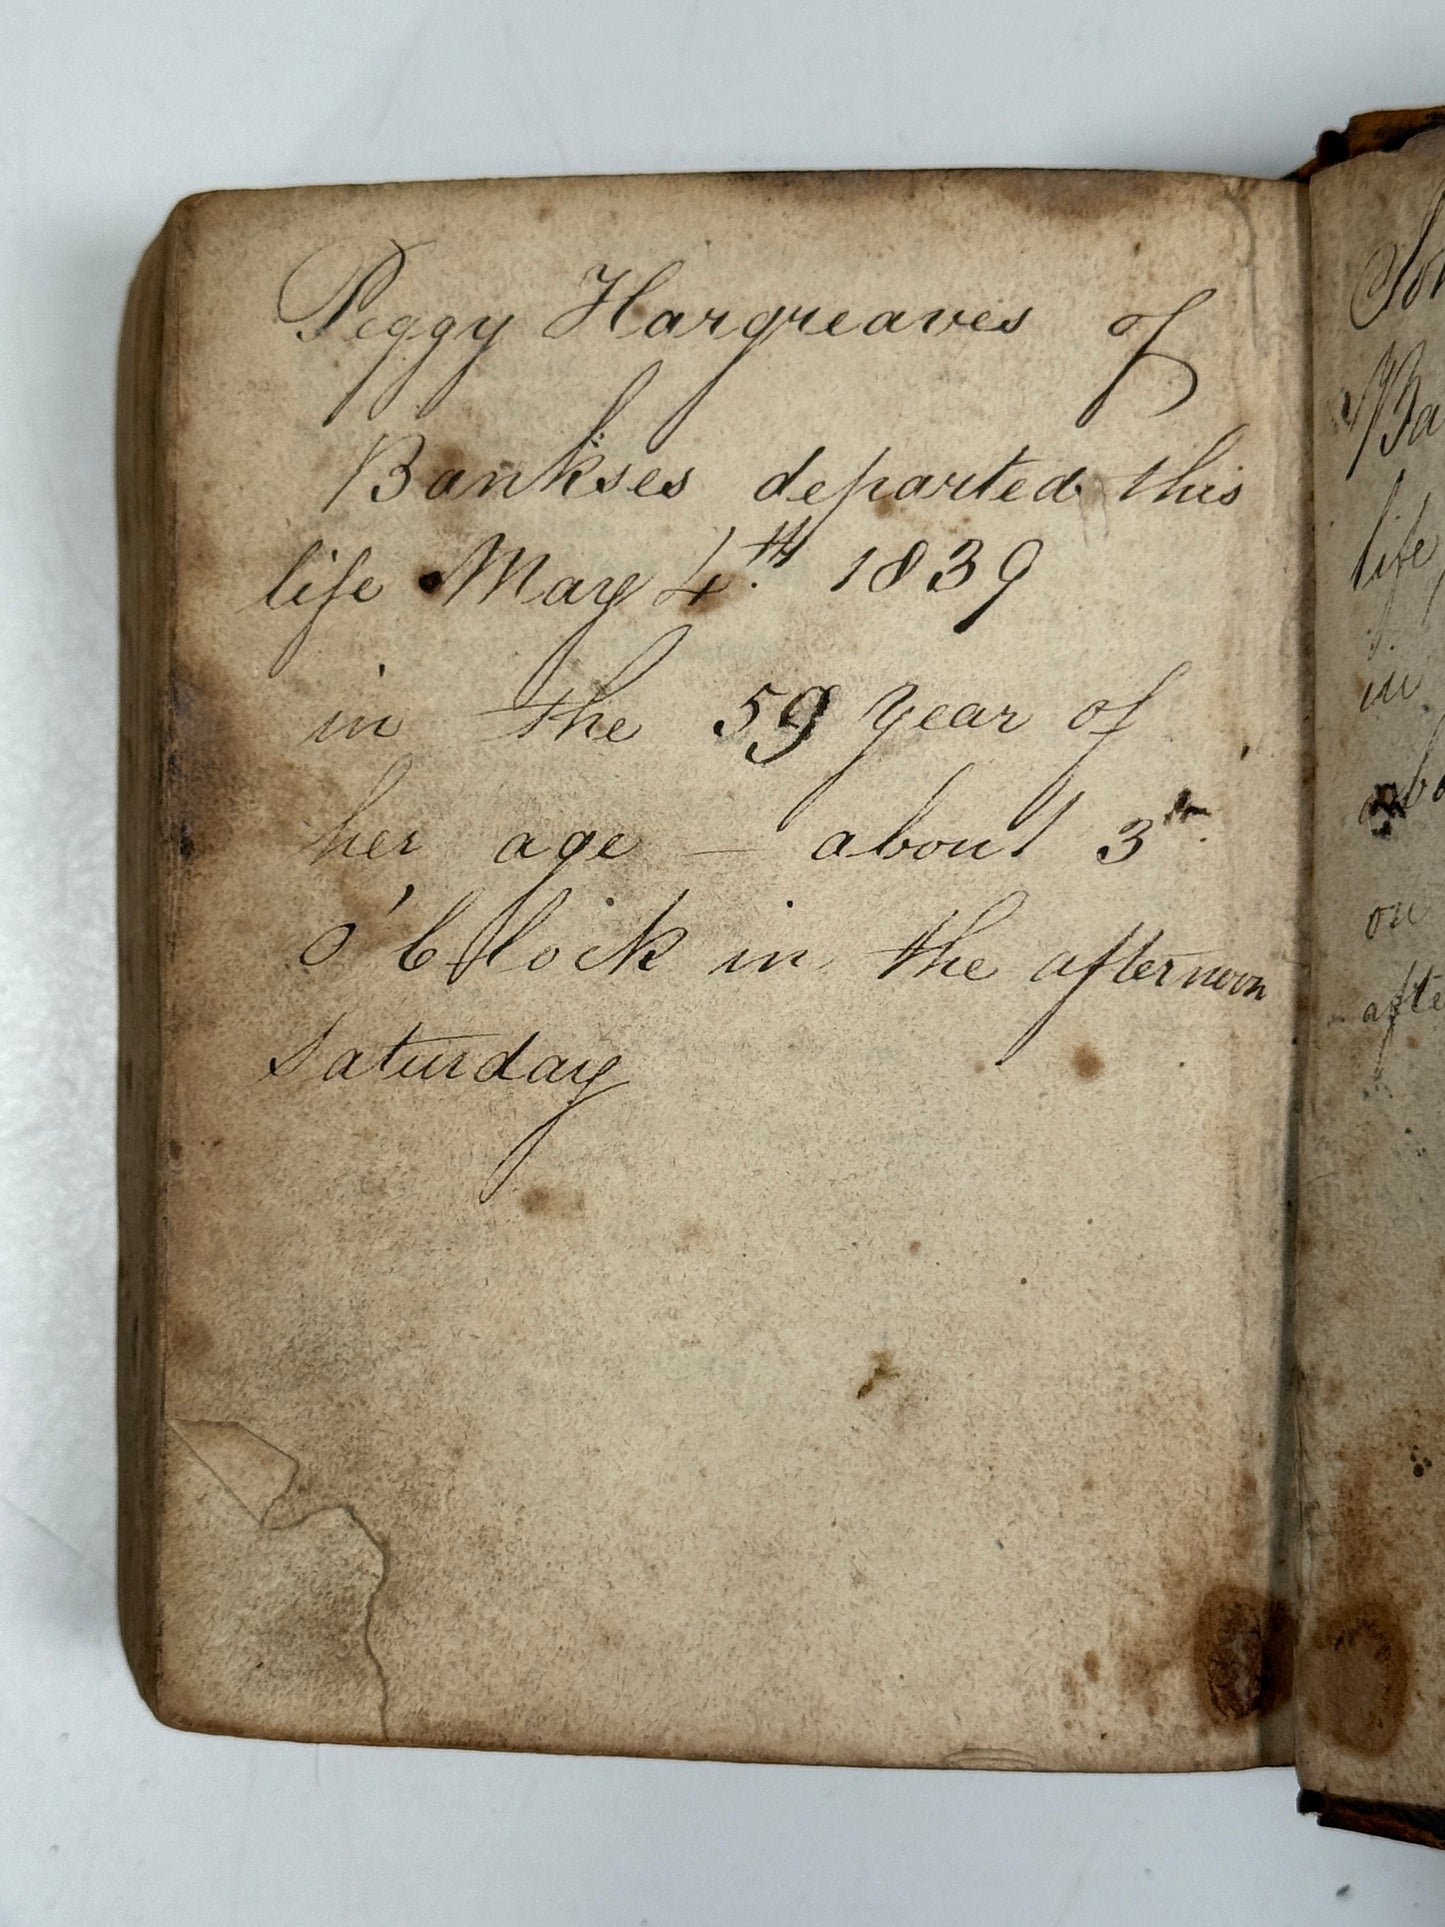 Peggy Hargreaves of
Bankses departed this
life May 4th 1839
in the 59 year of
her age — about 3
o'Clock in the afternoon
Saturday
life
in
on